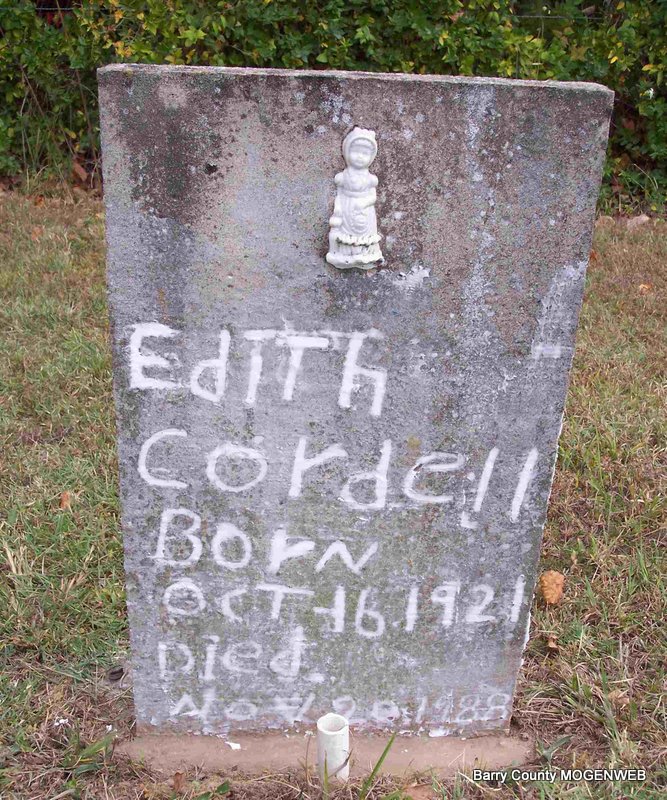 Edith
Cordell
Born
Oct-16.1921
Died.
Nov 20.1988
Barry County MOGENWEB